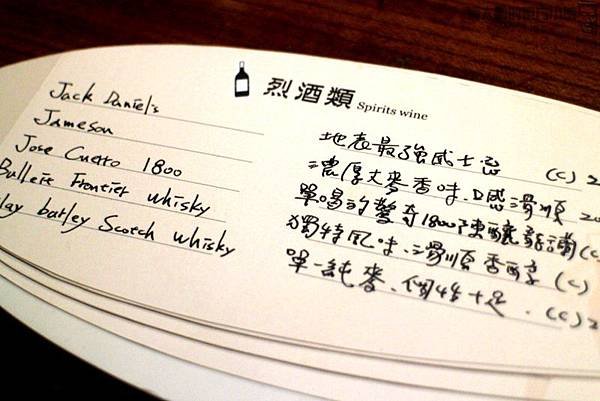 烈酒類 Spirits wine
Jack Daniel's 地表最強威士忌 (c) 2
Jameson 濃厚大麥香味.口感滑順 20
Jose Cuerto 1800 單喝的驚奇1800陳釀龍舌蘭 (c)
Bulleit Frontier whisky 獨特風味.滑順香醇 (c)
lay barley Scotch whisky 單一純麥.個性十足. (c) 2